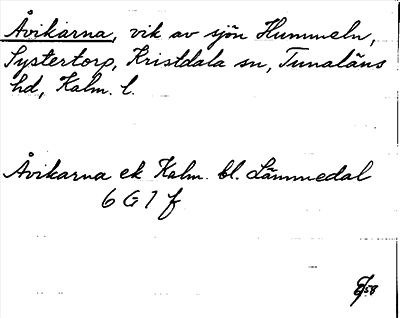 Åvikarna, vik av sjön Hummeln,
Systertorp, Kristdala sn, Tunaläns
hd, Kalm. l.
Åvikarna ek Kalm. bl. Lämmedal
6 G 1 f